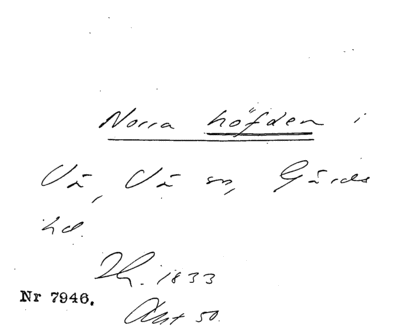 Norra höfden i
Vä, Vä sn, Gärds
hd.
Th. 1833
Akt 50.
Nr 7946.